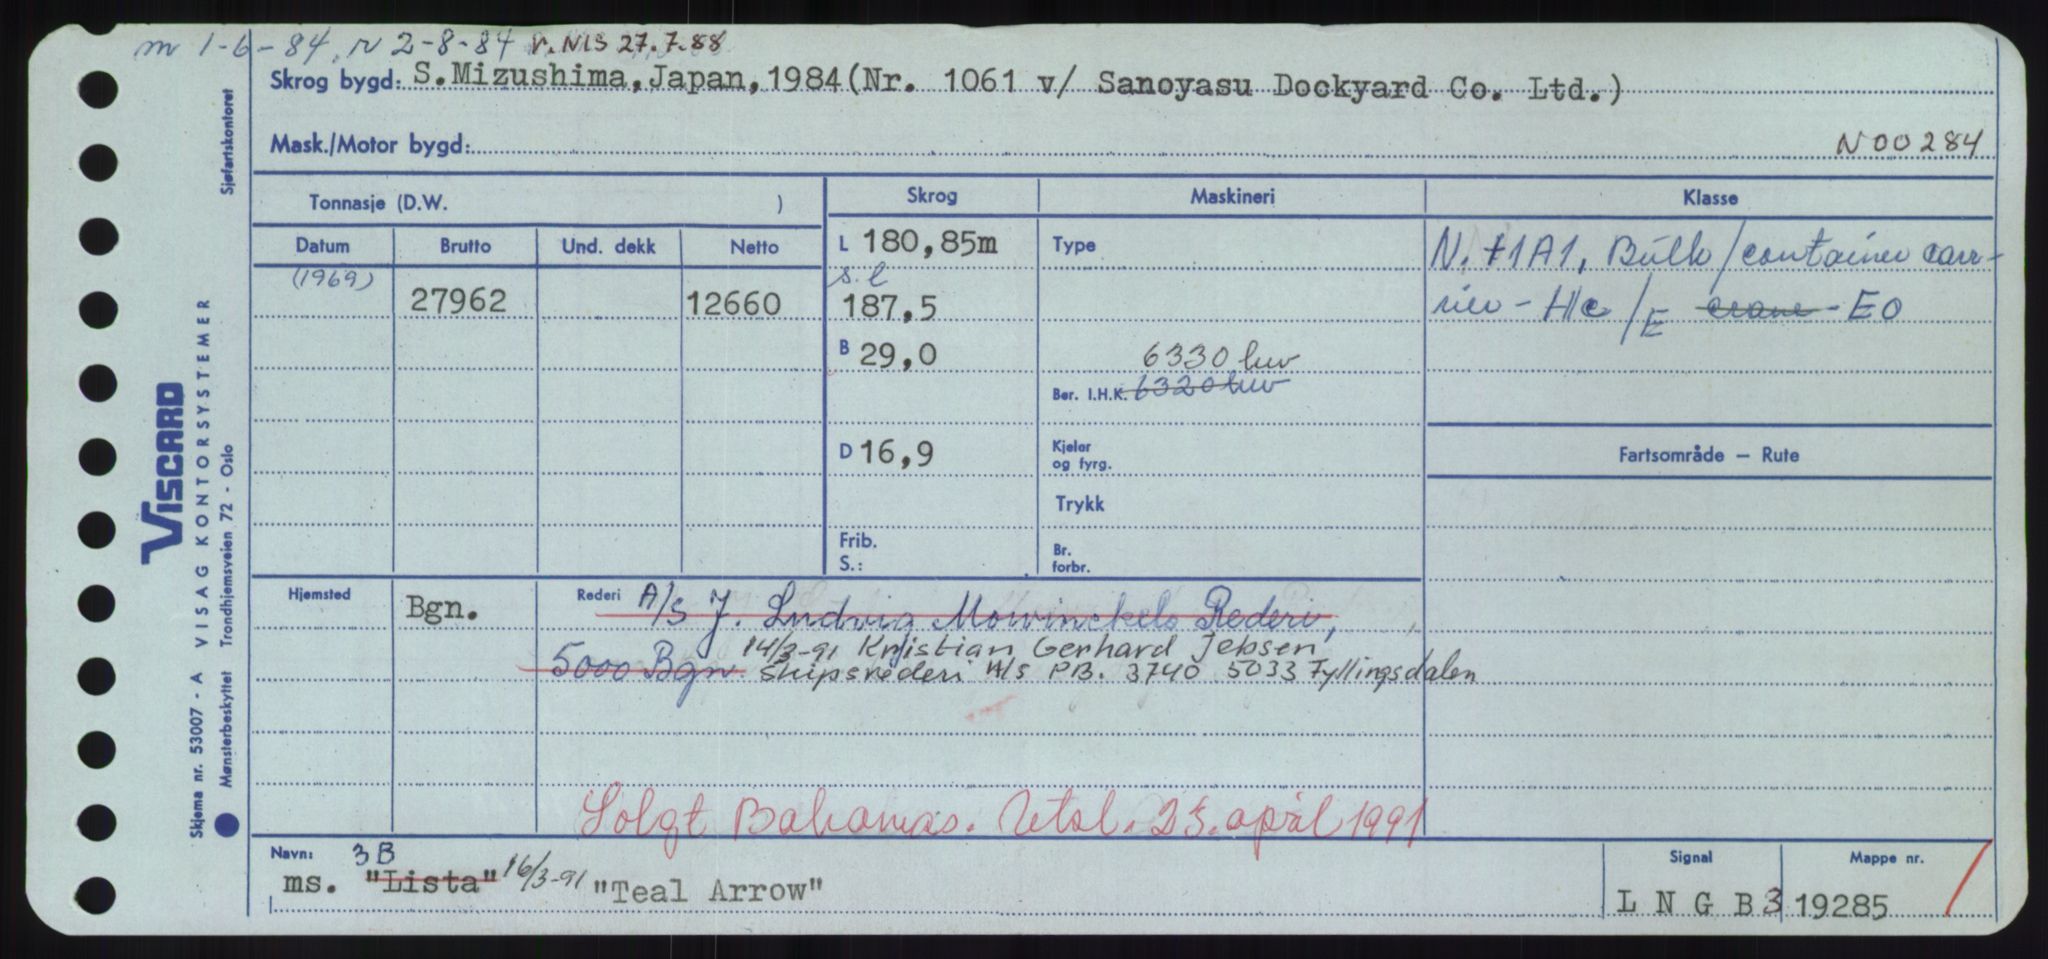 m 1-6-84, r 2-8-84 r. NIS 27.7.88
Skrog bygd: S.Mizushima, Japan, 1984 (Nr. 1061 v/ Sanoyasu Dockyard Co. Ltd.)
Mask./Motor bygd: N 00284
Tonnasje (D.W. ) Skrog Maskineri Klasse
Datum Brutto Und. dekk Netto L 180,85m Type N. +1A1, Bulk/container carr-
(1969) s.l
27962 12660 187,5 rier - H/c /E crane - EO
B 29,0 6330 kw
Ber. I.H.K. 6320 kw
D 16,9 Kjeler og fyrg. Fartsområde — Rute
Trykk
Frib. Br.
S.: forbr.
Hjemsted Bgn. Rederi A/S J. Ludwig Mowinckels Rederi,
14/3-91 Kristian Gerhard Jebsen
5000 Bgn. Skipsrederi A/S PB. 3740 5033 Fyllingsdalen
Solgt Bahamas. Utsl. 23. april 1991
Navn: 3B Signal Mappe nr.
ms. "Lista" 16/3-91 "Teal Arrow" L N G B 3 19285 /
VISCARD
VISAG KONTORSYSTEMER
Skjema nr. 53007 - A
Mønsterbeskyttet Trondhjemsveien 72 - Oslo
Sjøfartskontoret